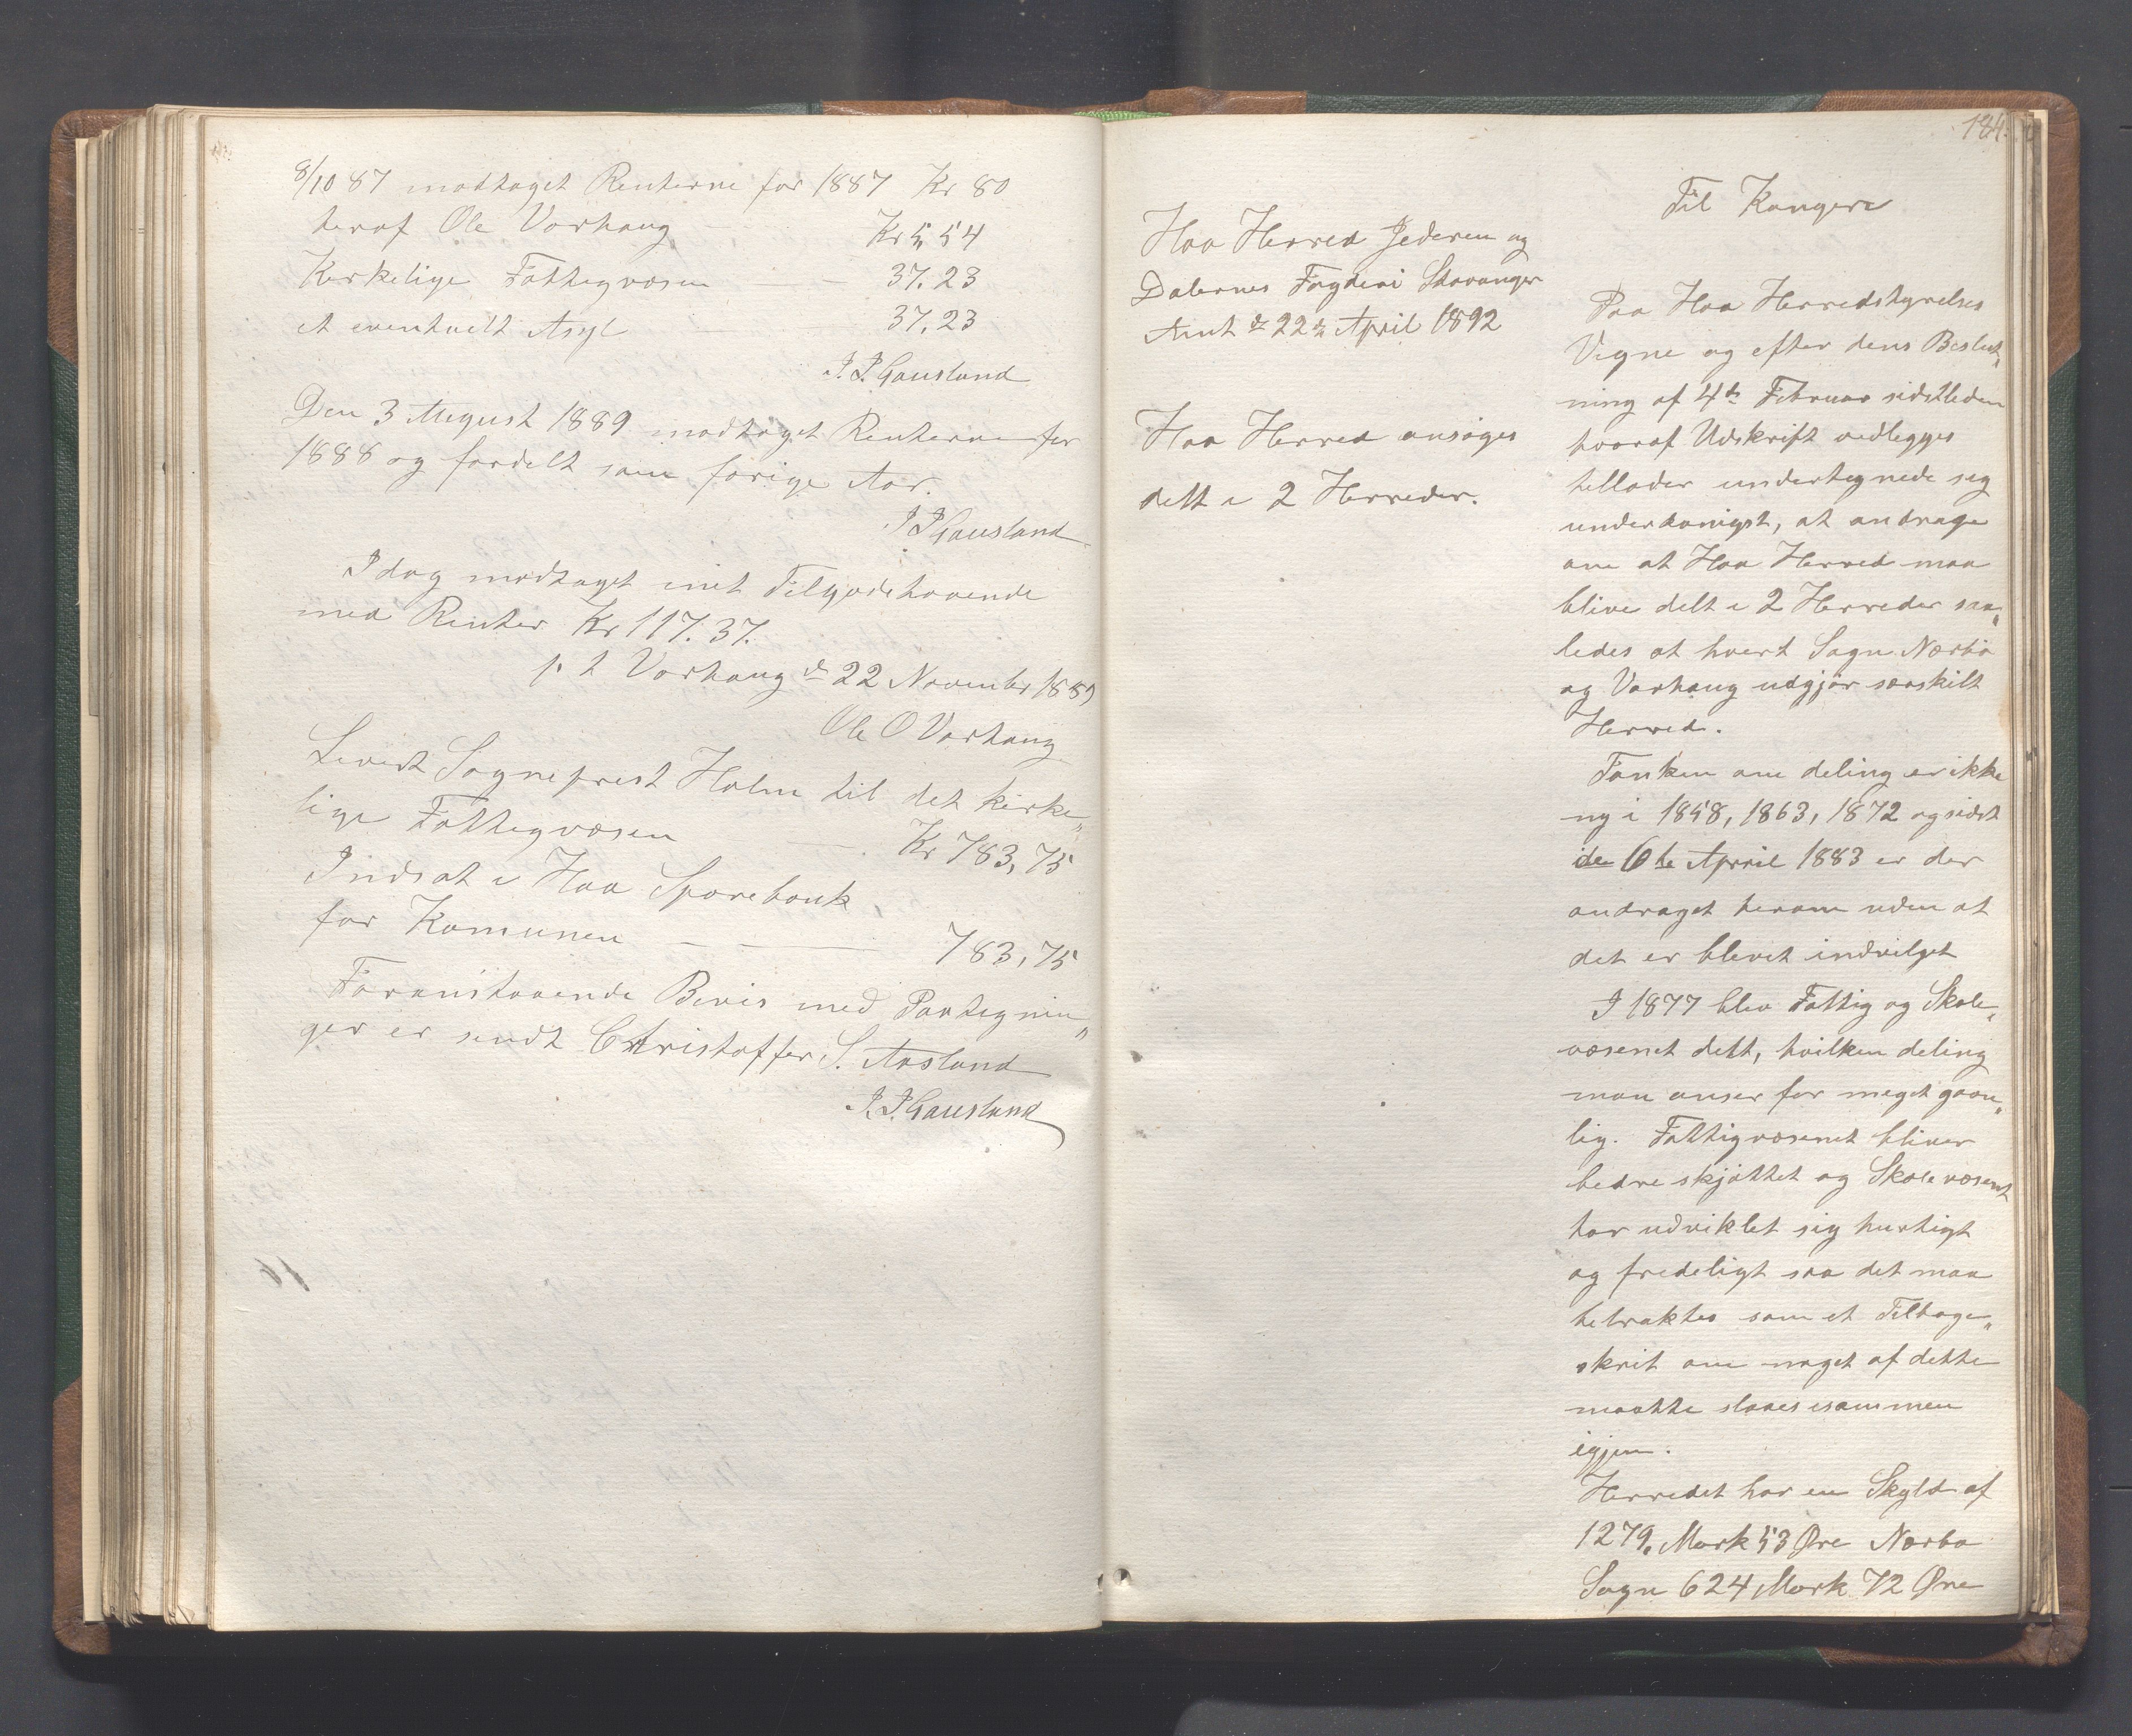 8/10 87 modtaget Renterne for 1887 Kr 80
heraf Ole Varhaug Kr 5,54
Kirkelige Fattigvæsen 37.23
et eventuelt Asyl 37,23
J. J. Gausland
Den 3 August 1889 modtaget Renterne for
1888 og fordelt som forige Aar.
J J Gausland
Idag modtaget mit Tilgodehavende
med Renter Kr 117.37.
p. t Varhaug d 22 November 1889
Ole O Varhaug
Levert Sogneprest Holm til det kirke„
lige Fattigvæsen Kr 783,75
Indsat i Haa Sparebank
for Komunen 783,75
Foranstaaende Bevis med Paategnin„
ger er sendt Christoffer S. Aasland
J. J. Gausland
184.
Haa Herred Jederen og
Dalernes Fogderi Stavanger
Amt d 22de April 1892
Haa Herred ansøges
delt i 2 Herreder.
Til Kongen
Paa Haa Herredstyrelses
Vegne og efter dens Beslut„
ning af 4de Februar sidstleden
hvoraf Udskrift vedlegges
tillader undertegnede seg
underdanigst, at andrage
om at Haa Herred maa
blive delt i 2 Herreder saa„
ledes at hvert Sogn Nærbø
og Varhaug udgjør særskilt
Herred.
Tanken om deling er ikke
ny i 1858, 1863, 1872 og sidst
de 6te April 1883 er der
andraget herom uden at
det er blevet indvilget
I 1877 blev Fattig og Skole„
væsenet delt, hvilken deling
man anser for meget gavn„
lig. Fattigvæsenet bliver
bedre skjøttet og Skolevæsent
har udviklet sig hurtigt
og fredeligt saa det maa
betraktes som et Tilbage„
skrit om noget af dette
maatte slaaes isammen
igjen.
Herredet har en Skyld af
1279, Mark 53 Øre Nærbø
Sogn 624 Mark 72 Øre